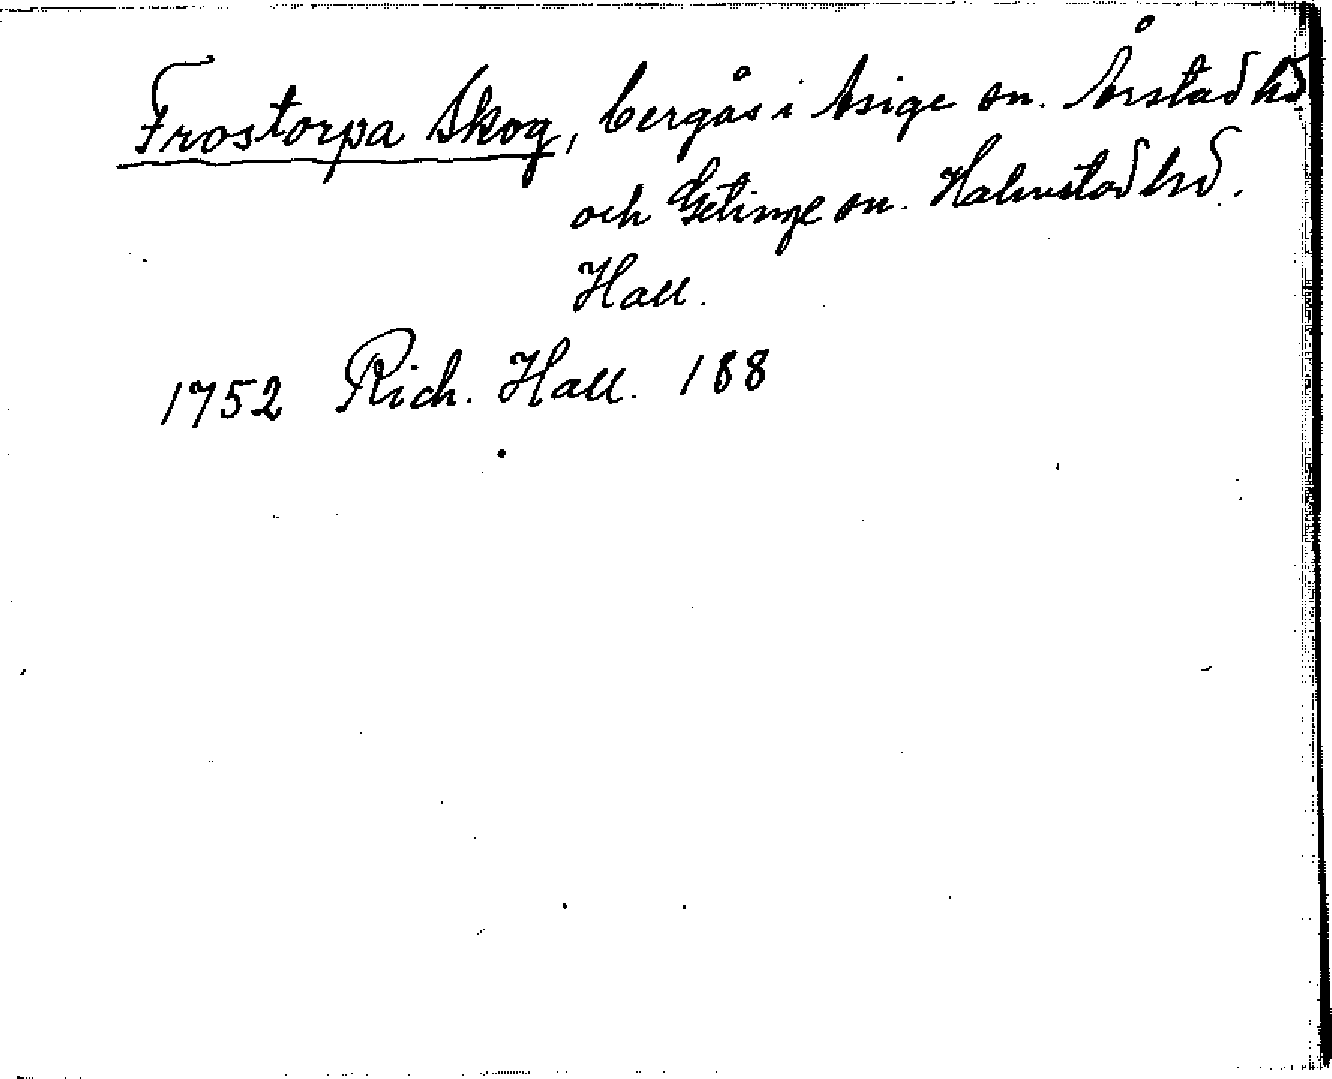 Frostorpa Skog, bergås i Asige sn. Årstad hd
och Getinge sn. Halmstad hd.
Hall.
1752 Rich. Hall. 188